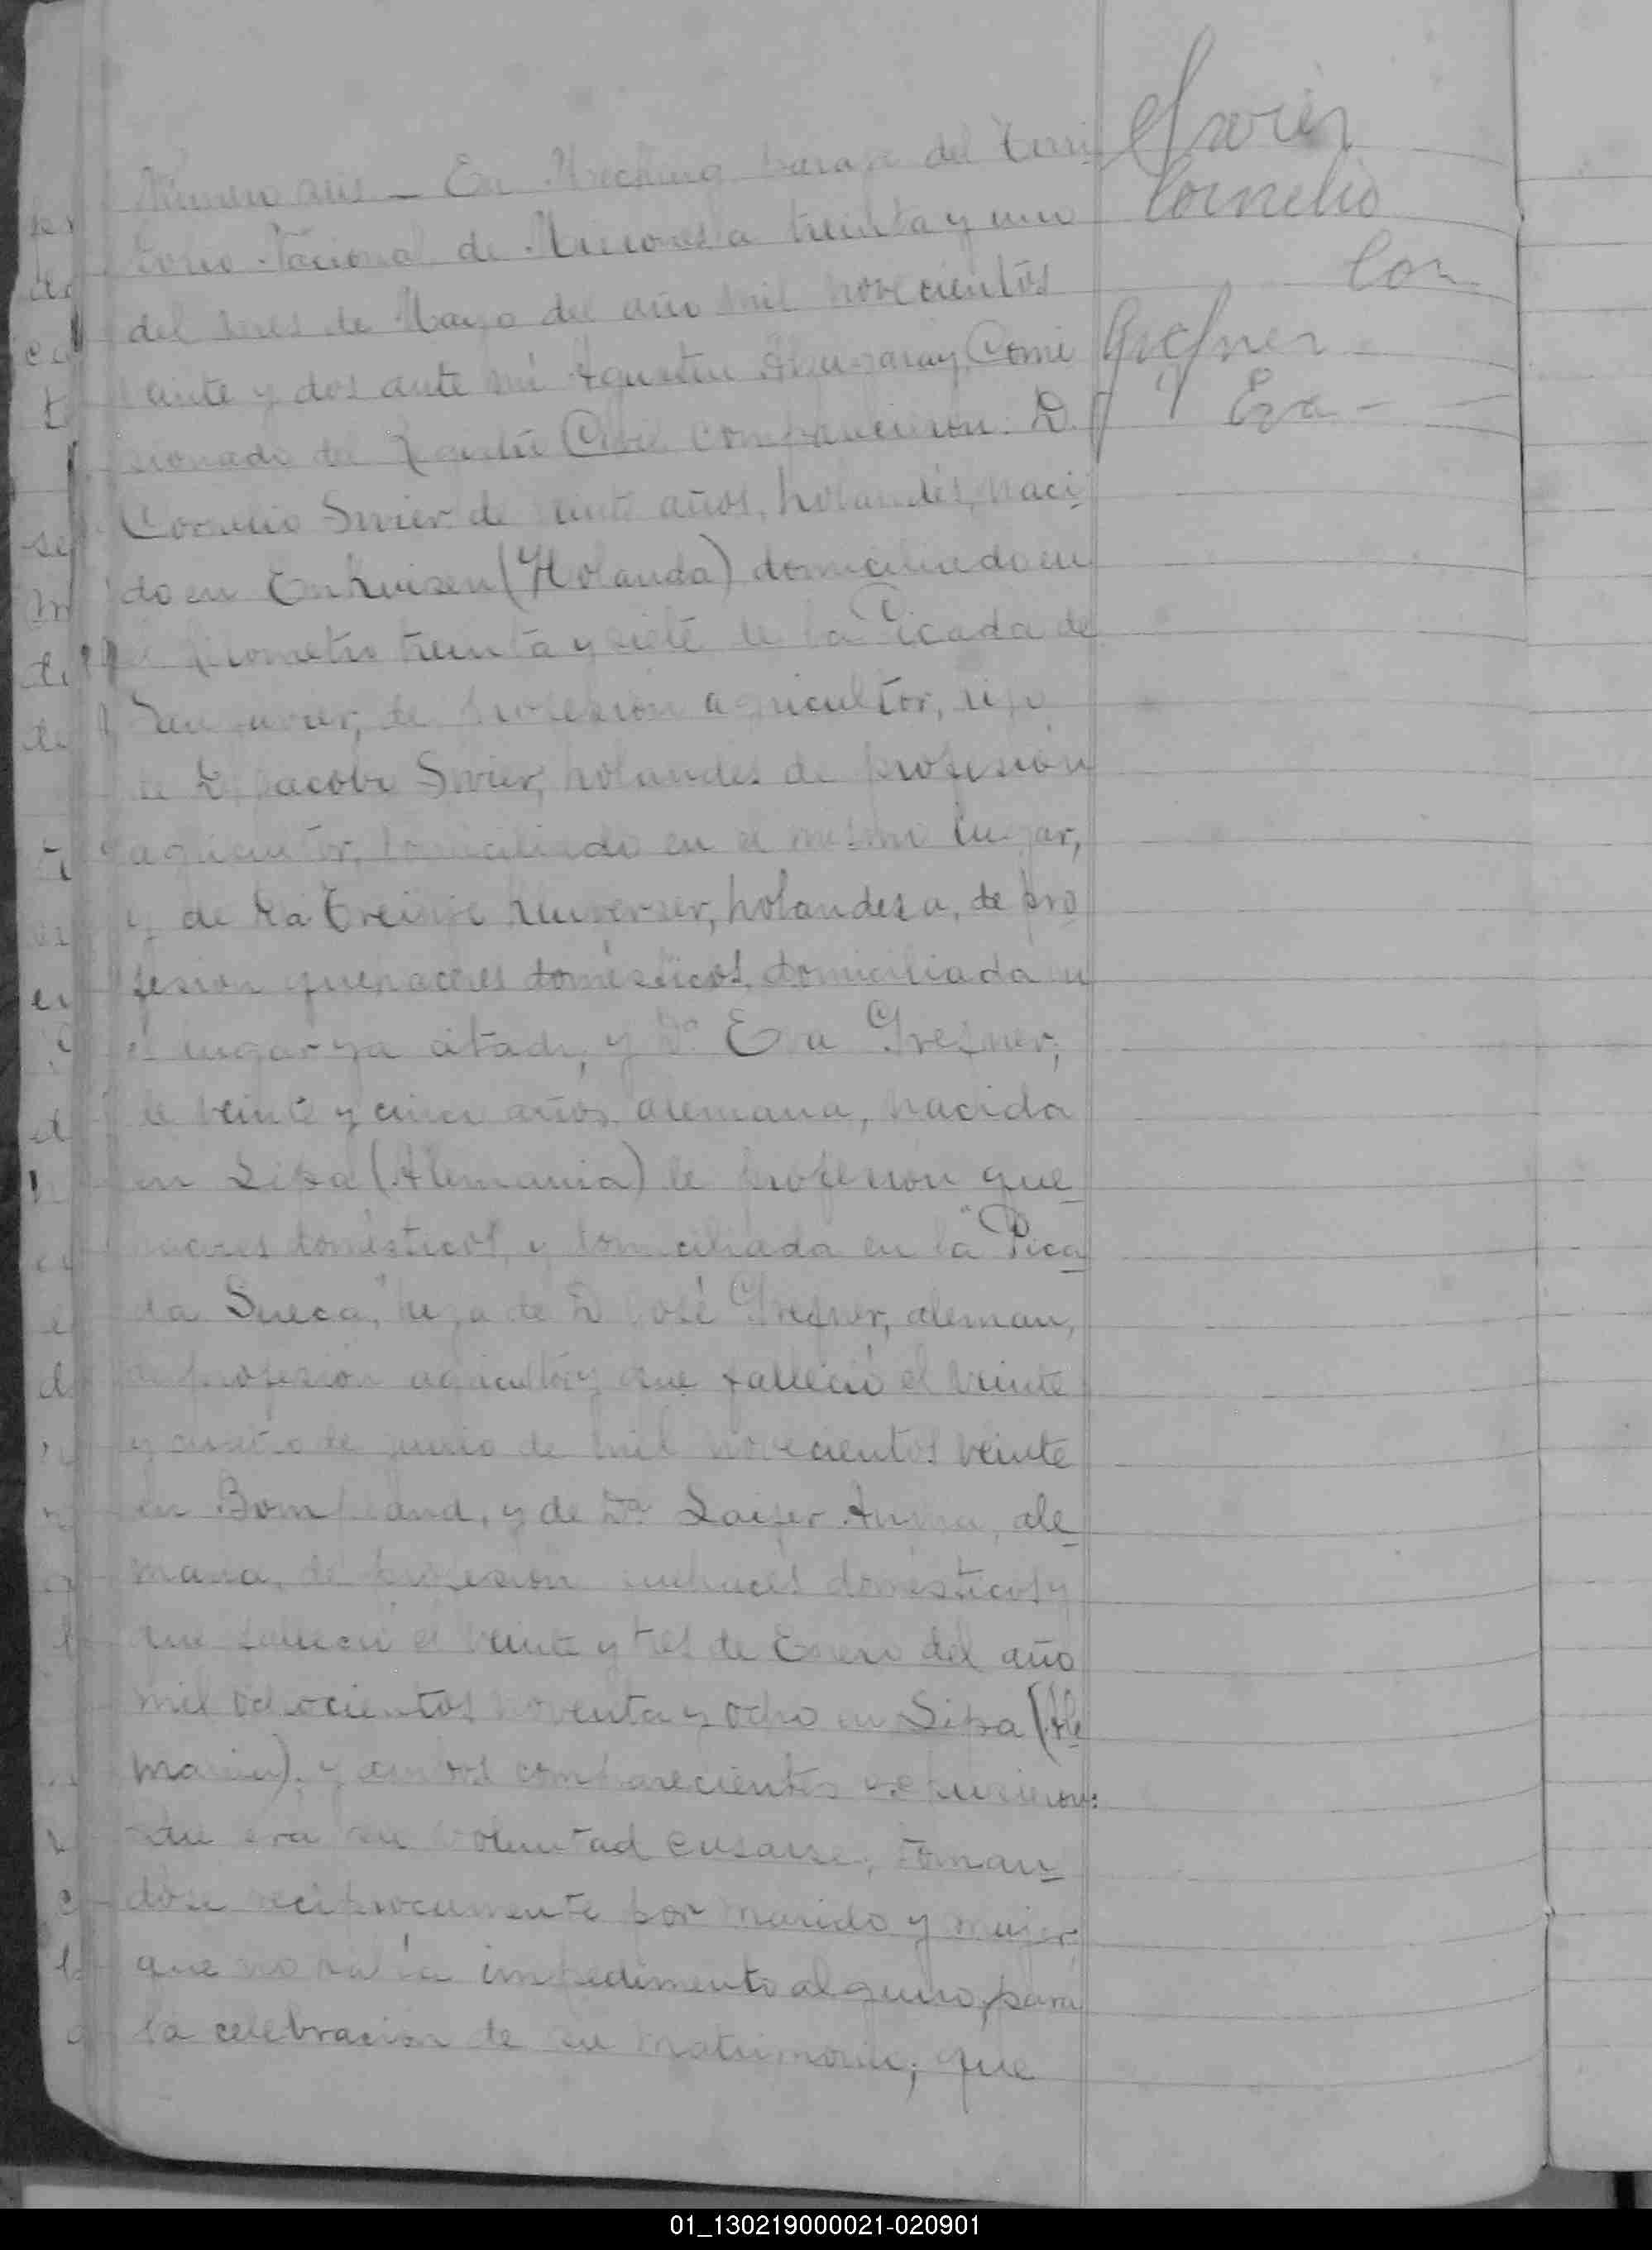 Swier
Cornelio
Con
Grefner
y Eva -
Número seis - En Mecking paraje del Terri
torio Nacional de Misiones a treinta y uno
del mes de Mayo del año mil novecientos
veinte y dos ante mí Agustin Comi
sionado del Registro Civil comparecieron: D.
Cornelio Swier de veinte años, holandés, naci
do en Enkuisen (Holanda) domiciliado en
el kilometro treinta y siete de la Picada de
San Javier, de profesion agricultor, hijo
de D. Jacobo Swier, holandes de profesion
agricultor, domiciliado en el mismo lugar,
y de Da holandesa, de pro
fesion quehaceres domésticos, domiciliada en
el lugar ya citado, y Da. Eva Grefner,
de veinte y cinco años alemana, nacida
en Lipa (Alemania) de profesion que
haceres domésticos, y domiciliada en la "Pica
da Sueca", hija de D José Grefner, aleman,
de profesion agricultor y que falleció el veinte
y cuatro de de mil novecientos veinte
en Bompland, y de Da ale
mana, de profesion quehaceres domésticos y
que falleció el veinte y tres de Enero del año
mil ochocientos noventa y ocho en Lipa (Ale
mania), y ambos comparecientes expusieron:
que era su voluntad casarse, toman
dose reciprocamente por marido y mujer,
que no había impedimento alguno, para
la celebracion de su matrimonio, que
01_130219000021-020901